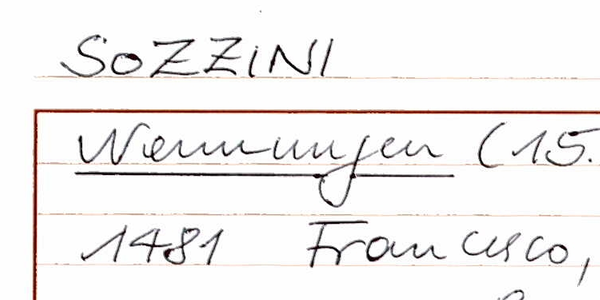 SOZZINI
Nennungen (15.
1481 Francesco,